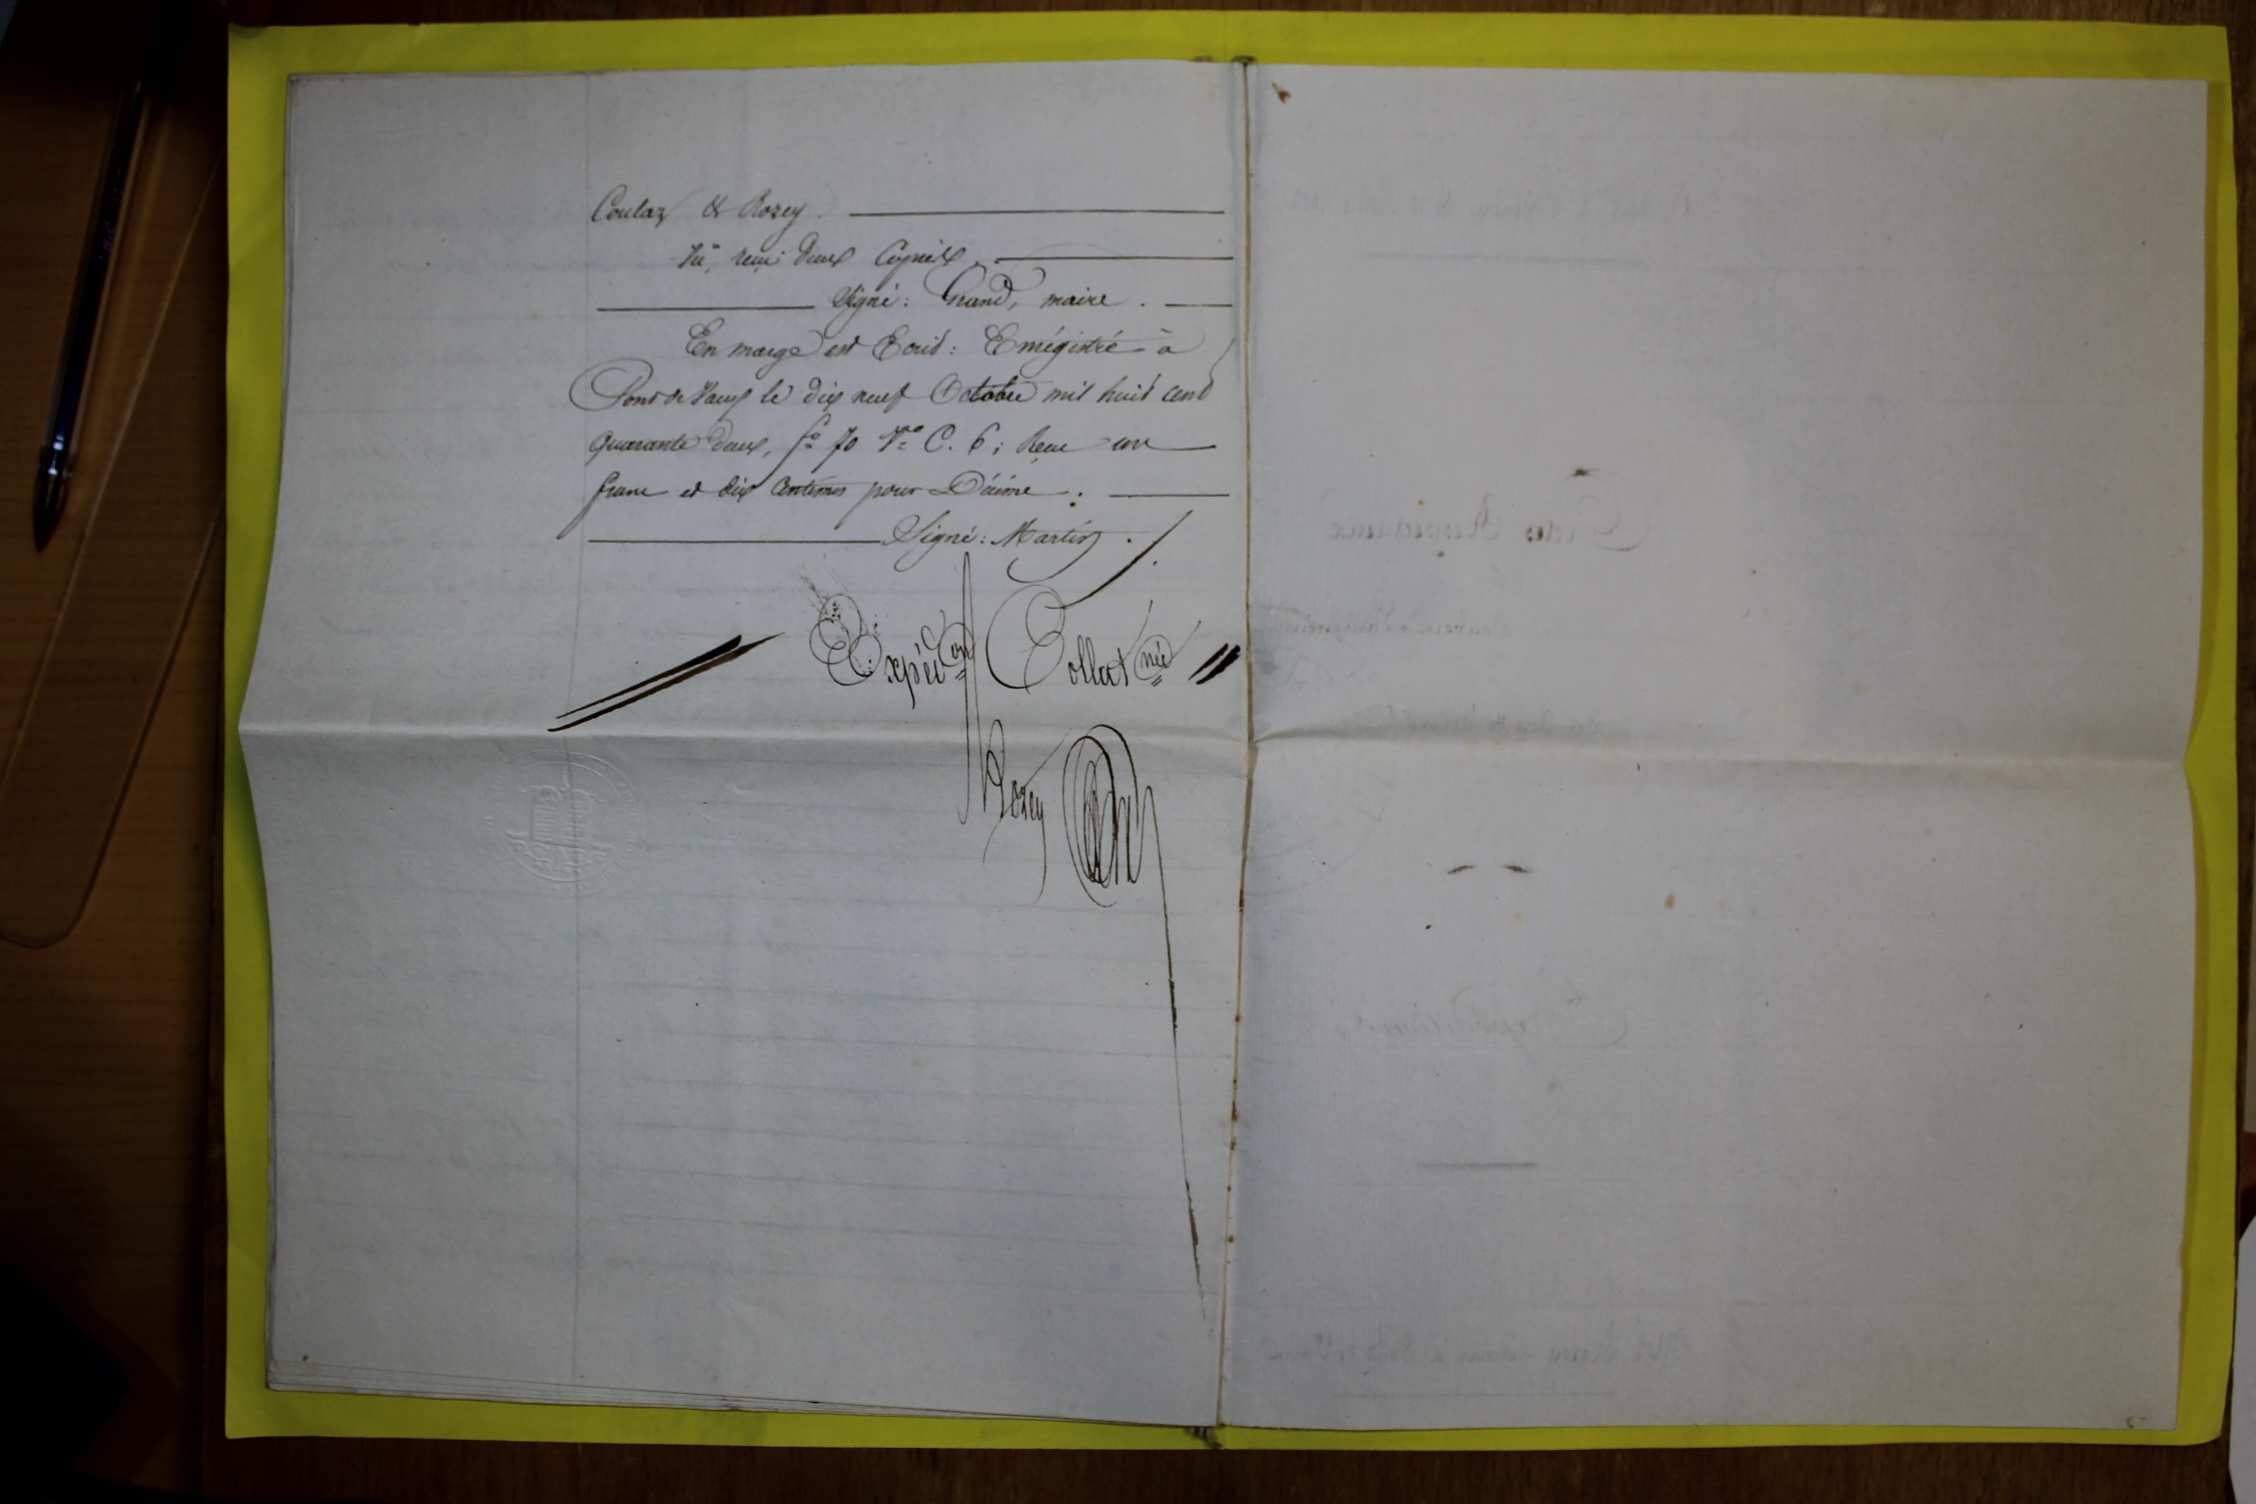 Coulaz & Rozey.
Signé: Grand, maire.
En marge est Ecrit: Enrégistré à
Pont de Vaux le dix neuf Octobre mil huit cent
quarante deux, f° 70 V° C. 6; Reçu un
franc et dix centimes pour Décime.
Signé: Martin.
Expéd on Collat née
Rozey